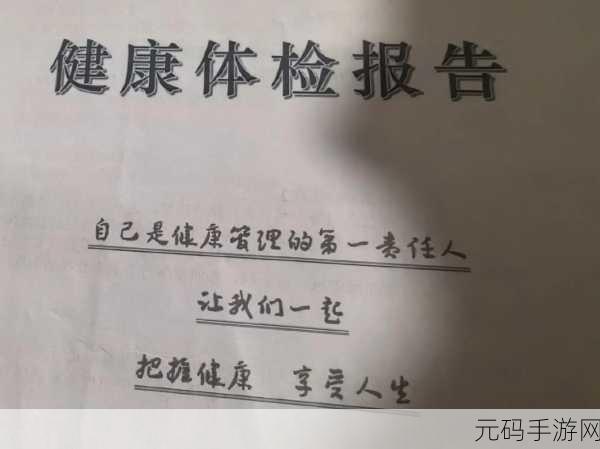 健康体检报告
自己是健康管理的第一责任人
让我们一起
把握健康 享受人生
元码手游网